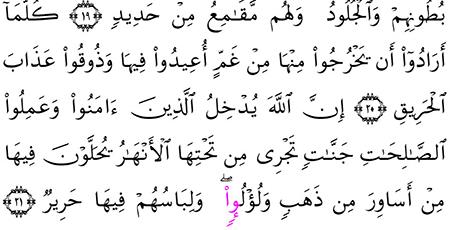 بُطُونِهِمْ وَالْجُلُودُ وَلَهُم مَّقَٰمِعُ مِنْ حَدِيدٖ ١٩ كُلَّمَآ
أَرَادُوٓاْ أَن يَخْرُجُواْ مِنْهَا مِنْ غَمٍّ أُعِيدُواْ فِيهَا وَذُوقُواْ عَذَابَ
اَلْحَرِيقِ ٢٠ إِنَّ اَللَّهَ يُدْخِلُ اُلذِينَ ءَامَنُواْ وَعَمِلُواْ
اُلصَّٰلِحَٰتِ جَنَّٰتٖ تَجْرِي مِن تَحْتِهَا اَلْأَنْهَٰرُ يُحَلَّوْنَ فِيهَا
مِنْ أَسَاوِرَ مِن ذَهَبٖ وَلُؤْلُوٕٖاْۖ وَلِبَاسُهُمْ فِيهَا حَرِيرٞ ٢١